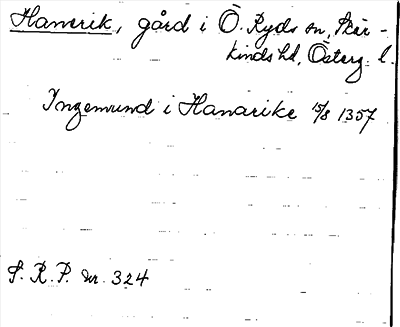 Hanerik, gård i Ö. Ryds sn, Skär-
kinds hd, Österg. l.
Ingemund i Hanarike 15/8 1357
S. R. P. nr. 324